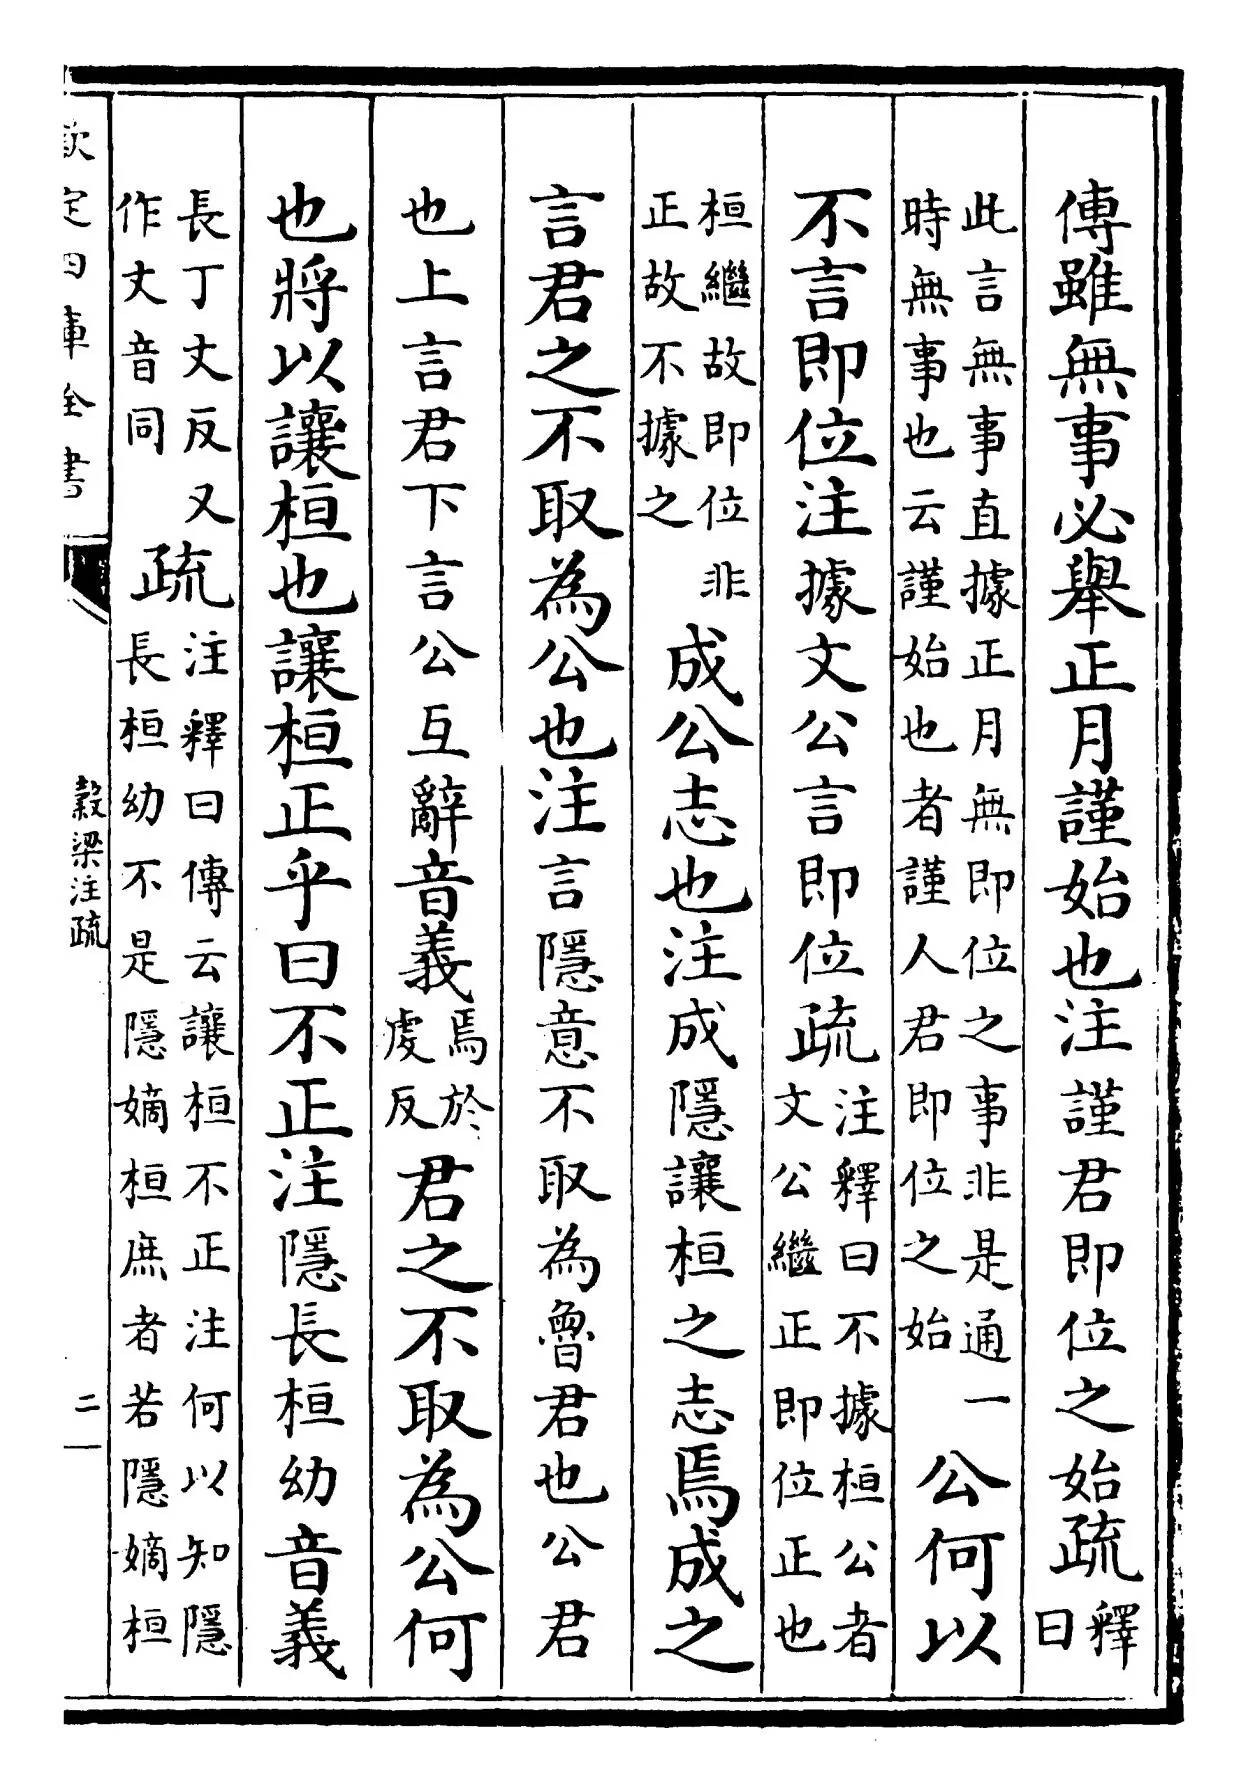 傳雖無事必舉正月謹始也注謹君即位之始疏釋曰
此言無事直據正月無即位之事非是通一
時無事也云謹始也者謹人君即位之始
公何以
不言即位注據文公言即位疏
注釋曰不據桓公者
文公繼正即位正也
桓繼故即位非
正故不據之
成公志也注成隱讓桓之志焉成之
言君之不取為公也注言隱意不取為魯君也公君
也上言君下言公互辭音義
焉於
虔反
君之不取為公何
也將以讓桓也讓桓正乎曰不正注隱長桓幼音義
長丁丈反又
作丈音同
疏
注釋曰傳云讓桓不正注何以知隱
長桓幼不是隱嫡桓庶者若隱嫡桓
欽定四庫全書
穀梁注疏
二